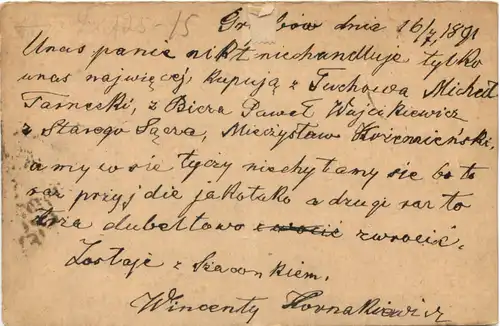 225-15
dnia 16/7 1891
Unas panie nikt niehandluje tylko
unas najwięcej kupują z Tuchowa Michał
Tarneski, z Biecza Paweł Wojcikiewicz
z Starego Sącza, Mieczysław
a my w sie tyczy niechytamy się bo to
raz przyjdie jakotako a drugi raz to
trza dubeltowo zwrocić.
Zostaje z Szacunkiem.
Wincenty